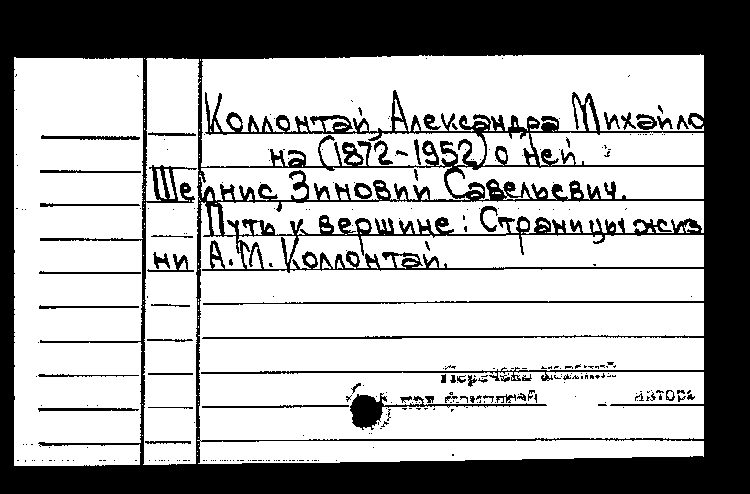 Коллонтай, Александра Михайло
на (1872-1952) о ней.
Шейнис, Зиновий Савельевич.
Путь к вершине: Страницы жиз
ни А.М. Коллонтай.
Перечень изданий
под фамилией автора